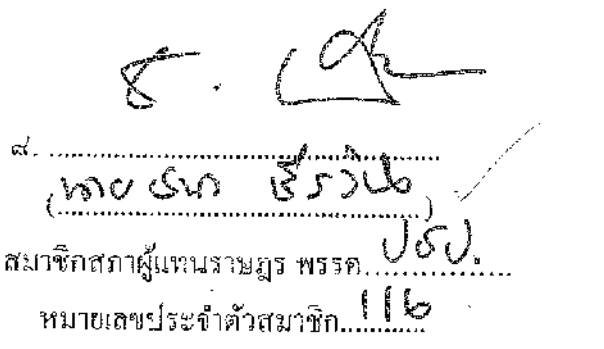 ๘. ........................................
(นาย ธนา ชีรวินิจ)
สมาชิกสภาผู้แทนราษฎร พรรค ปชป.
หมายเลขประจำตัวสมาชิก 116